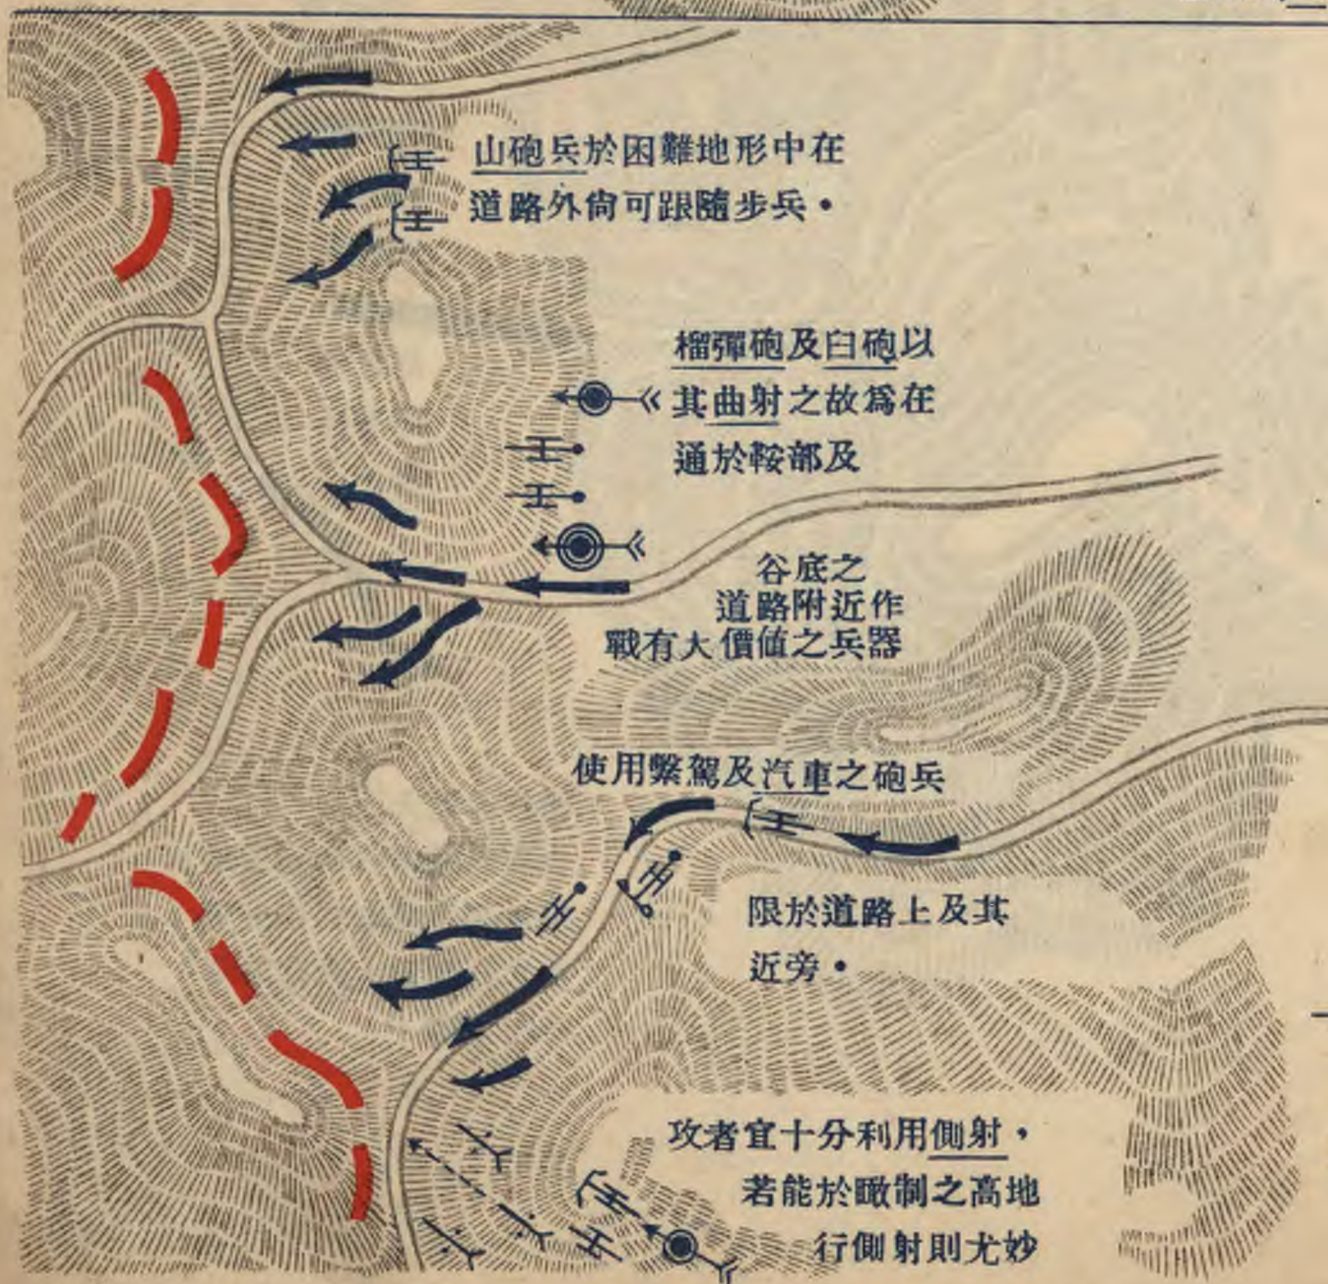 山砲兵於困難地形中在
道路外尙可跟隨步兵・
榴彈砲及臼砲以
其曲射之故爲在
通於鞍部及
谷底之
道路附近作
戰有大價値之兵器
使用繫駕及汽車之砲兵
限於道路上及其
近旁・
攻者宜十分利用側射，
若能於瞰制之高地
行側射則尤妙